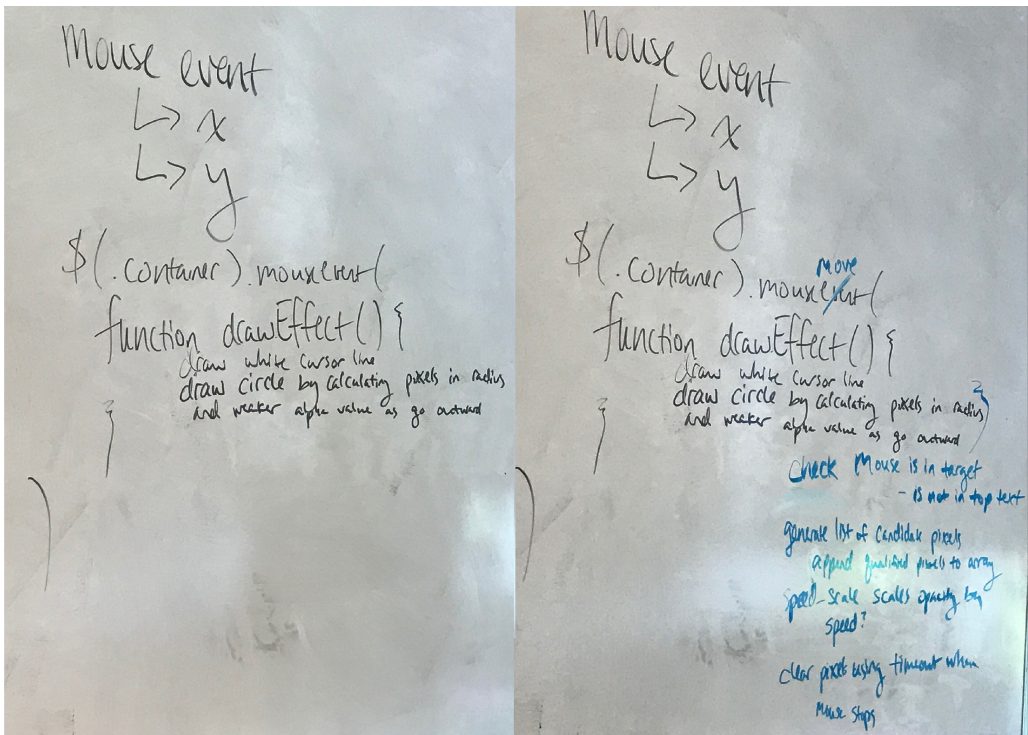 Mouse event
↳ x
↳ y
$(.container).mouseevent(
function drawEffect() {
draw white cursor line
draw circle by calculating pixels in radius
and weaker alpha value as go outward
}
)
Mouse event
↳ x
↳ y
move
$(.container).mouseevent(
function drawEffect() {
draw white cursor line
draw circle by calculating pixels in radius
and weaker alpha value as go outward
}
)
check Mouse is in target
- is not in top text
generate list of candidate pixels
append qualified pixels to array
speed_scale scales opacity by
speed?
clear pixels using timeout when
Mouse stops